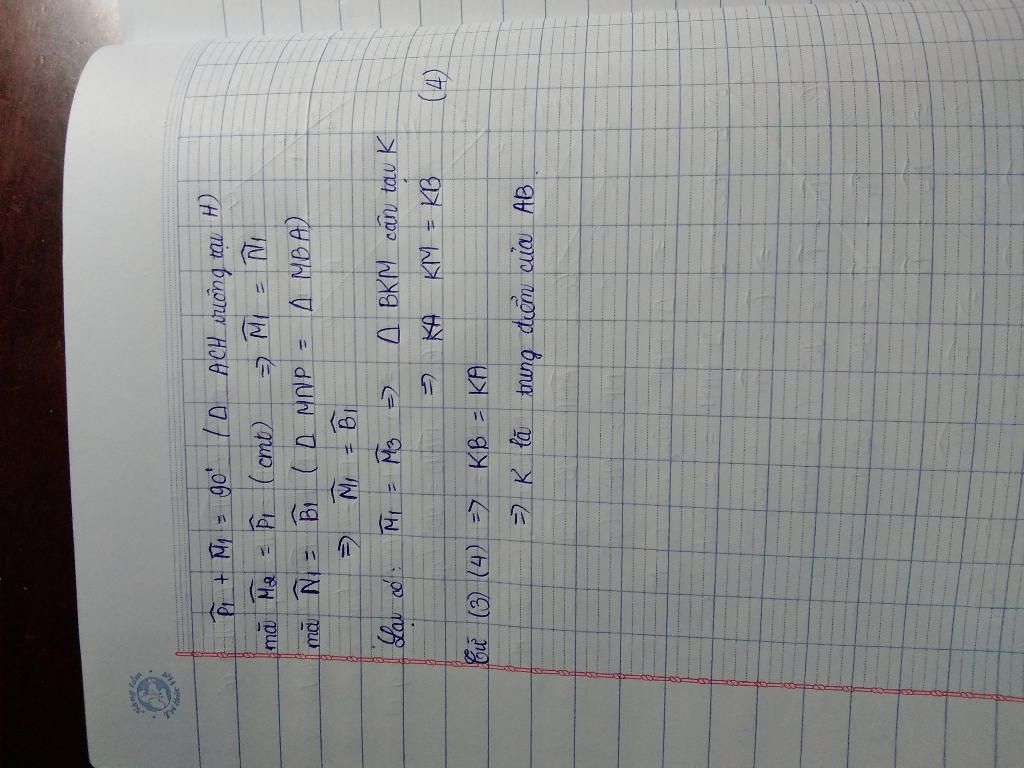 P̂₁ + M̂₁ = 90° (Δ ACH vuông tại H)
mà M̂₂ = P̂₁ (cmt) => M̂₁ = N̂₁
mà N̂₁ = B̂₁ (Δ MNP = Δ MBA)
=> M̂₁ = B̂₁
Lại có: M̂₁ = M̂₃ => Δ BKM cân tại K
=> KA KM = KB (4)
Từ (3) (4) => KB = KA
=> K là trung điểm của AB.